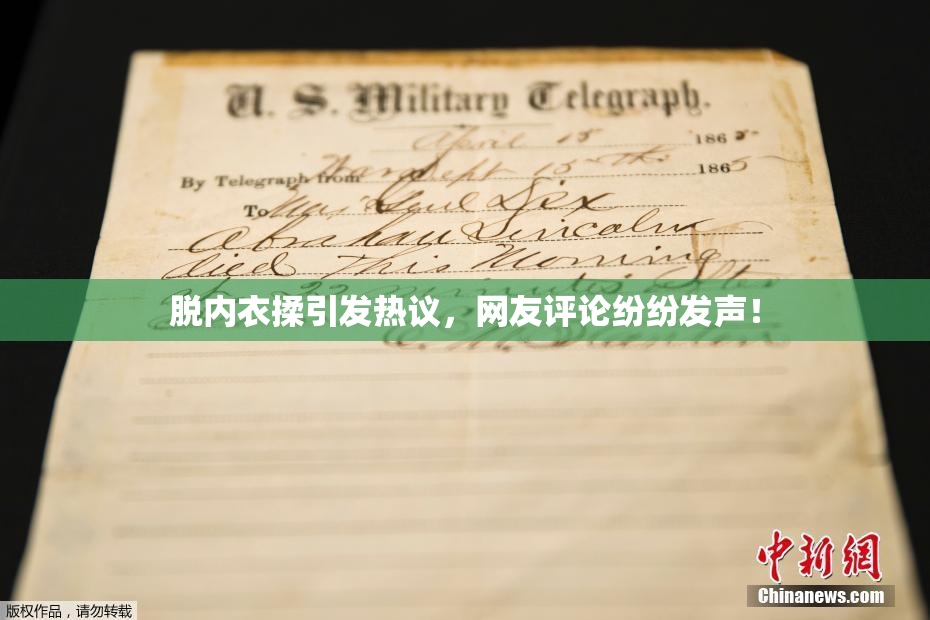 U. S. Military Telegraph.
April 15 1865
By Telegraph from War Dept 15th 1865
To Maj Genl Dix
Abraham Lincoln
died This Morning
at 22 minutes after
脱内衣揉引发热议，网友评论纷纷发声！
E. M. Stanton
中新网
Chinanews.com
版权作品，请勿转载